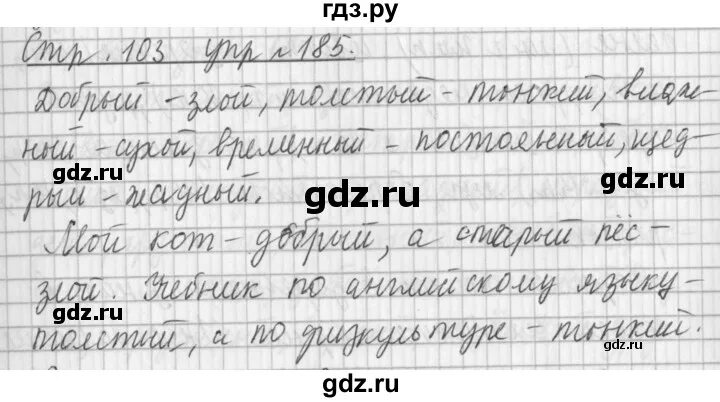 гдз.ру
Стр. 103 упр № 185.
Добрый - злой, толстый - тонкий, влаж-
ный - сухой, временный - постоянный, щед-
gdz.ru
gdz.ru
рый - жадный.
gdz.ru
Мой кот - добрый, а старый пёс -
gdz.ru
злой. Учебник по английскому языку -
толстый, а по физкультуре - тонкий.
gdz.ru
gdz.ru